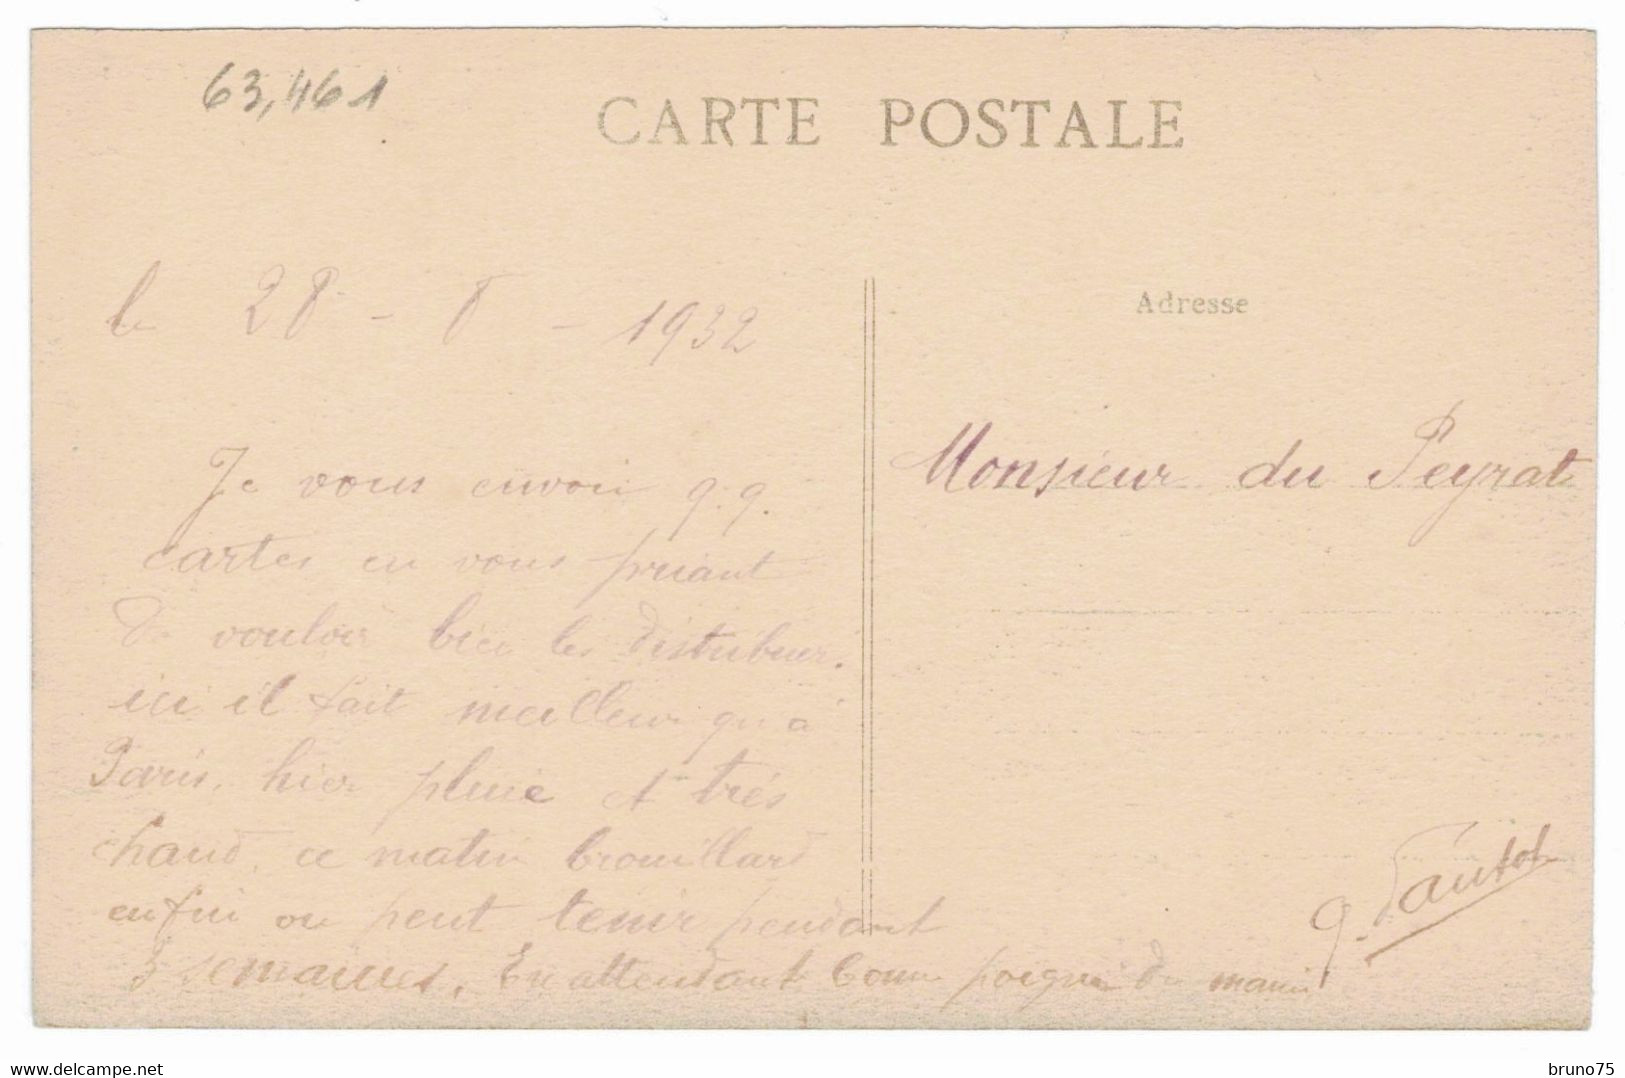 63,461
CARTE POSTALE
le 28 - 8 - 1932
Adresse
Monsieur du Peyrat
Je vous envoi q.q.
cartes en vous priant
de vouloir bien les distribuer.
ici il fait meilleur qu'à
Paris, hier pluie et très
chaud, ce matin brouillard
enfin on peut tenir pendant
3 semaines. En attendant bonne poignée de main
delcampe.net
bruno75